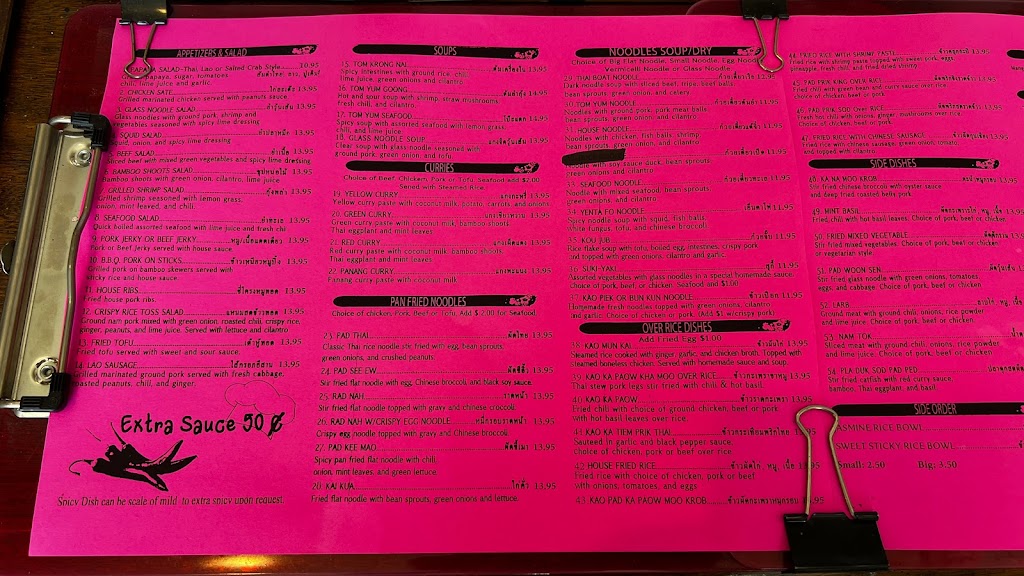 APPETIZERS & SALAD
PAPAYA SALAD-Thai, Lao or Salted Crab Style 10.95
papaya, sugar, tomatoes
lime juice and garlic
2. CHICKEN SATE 13.95
Grilled marinated chicken served with peanuts sauce
GLASS NOODLE SALAD 13.95
Glass noodles with ground pork, shrimp and
vegetables seasoned with spicy lime dressing
SQUID SALAD 13.95
squid, onion, and spicy lime dressing
BEEF SALAD 13.95
Sliced beef with mixed green vegetables and spicy lime dressing
BAMBOO SHOOTS SALAD 13.95
Bamboo shoots with green onion, cilantro, lime juice
GRILLED SHRIMP SALAD 13.95
Grilled shrimp seasoned with lemon grass,
onion, mint leaved, and chili.
8. SEAFOOD SALAD 13.95
Quick boiled assorted seafood with lime juice and fresh chi
9. PORK JERKY OR BEEF JERKY 13.95
Pork or Beef Jerky served with house sauce
10. B.B.Q. PORK ON STICKS 13.95
Grilled pork on bamboo skewers served with
sticky rice and house sauce
11. HOUSE RIBS 13.95
Fried house pork ribs.
12. CRISPY RICE TOSS SALAD 13.95
Ground nam pork mixed with green onion, roasted chili, crispy rice,
ginger, peanuts, and lime juice. Served with lettuce and cilantro
13. FRIED TOFU เต้าหู้ทอด 13.95
Fried tofu served with sweet and sour sauce.
14. LAO SAUSAGE ไส้กรอกอีสาน 13.95
Grilled marinated ground pork served with fresh cabbage,
roasted peanuts, chili, and ginger.
Extra Sauce 50 ¢
Spicy Dish can be scale of mild to extra spicy upon request.
SOUPS
15. TOM KRONG NAI 13.95
Spicy intestines with ground rice, chili,
lime juice, green onions and cilantro.
16. TOM YUM GOONG ต้มยำกุ้ง 13.95
Hot and sour soup with shrimp, straw mushrooms,
fresh chili, and cilantro.
17. TOM YUM SEAFOOD โป๊ะแตก 13.95
Spicy soup with assorted seafood with lemon grass,
chili, and lime juice
18. GLASS NOODLE SOUP แกงจืดวุ้นเส้น 13.95
Clear soup with glass noodle seasoned with
ground pork, green onion, and tofu.
CURRIES
Choice of Beef, Chicken, Pork or Tofu. Seafood add $2.00
Served with Steamed Rice
19. YELLOW CURRY แกงกะหรี่ 13.95
Yellow curry paste with coconut milk, potato, carrots, and onions
20. GREEN CURRY แกงเขียวหวาน 13.95
Green curry paste with coconut milk, bamboo shoots,
Thai eggplant and mint leaves
21. RED CURRY แกงเผ็ดแดง 13.95
Red curry paste with coconut milk, bamboo shoots,
Thai eggplant and mint leaves
22. PANANG CURRY แกงพะแนง 13.95
Panang curry paste with coconut milk
PAN FRIED NOODLES
Choice of chicken, Pork, Beef or Tofu, Add $2.00 for Seafood.
23. PAD THAI ผัดไทย 13.95
Classic Thai rice noodle stir fried with egg, bean sprouts,
green onions, and crushed peanuts.
24. PAD SEE EW ผัดซีอิ๊ว 13.95
Stir fried flat noodle with egg, Chinese broccoli, and black soy sauce.
25. RAD NAH ราดหน้า 13.95
Stir fried flat noodle topped with gravy and chinese broccoli
26. RAD NAH W/CRISPY EGG NOODLE หมี่กรอบราดหน้า 13.95
Crispy egg noodle topped with gravy and Chinese broccoli
27. PAD KEE MAO ผัดขี้เมา 13.95
Spicy pan fried flat noodle with chili,
onion, mint leaves, and green lettuce.
28. KAI KUA ไก่คั่ว 13.95
Fried flat noodle with bean sprouts, green onions and lettuce.
NOODLES SOUP/DRY
Choice of Big Flat Noodle, Small Noodle, Egg Nood
Vermicelli Noodle or Glass Noodle
29. THAI BOAT NOODLE 13.95
Dark noodle soup with sliced beef, tripe, beef balls,
bean sprouts, green onion and celery
30. TOM YUM NOODLE 13.95
Noodles with ground pork, pork meat balls,
bean sprouts, green onion and cilantro
31. HOUSE NOODLE 13.95
Noodles with chicken, fish balls, shrimp,
bean sprouts, green onion, and cilantro
ก๋วยเตี๋ยวเป็ด 13.95
Noodle with soy sauce duck, bean sprouts,
green onion, and cilantro.
33. SEAFOOD NOODLE ก๋วยเตี๋ยวทะเล 13.95
Noodle with mixed seafood, bean sprouts,
green onions, and cilantro
34. YENTA FO NOODLE เย็นตาโฟ 13.95
Spicy noodle soup with squid, fish balls,
white fungus, tofu, and chinese broccoli
35. KOU JUB ก๋วยจั๊บ 13.95
Rice flake soup with tofu, boiled egg, intestines, crispy pork
and topped with green onion, cilantro and garlic.
36. SUKI-YAKI สุกี้ 13.95
Assorted vegetables with glass noodles in a special homemade sauce.
Choice of pork, beef, or chicken. Seafood add $1.00
37. KAO PIEK OR BUN KUN NOODLE ข้าวเปียก 13.95
Homemade fresh noodles topped with green onions, cilantro
and garlic. Choice of chicken or pork. (Add $1 w/crispy pork)
OVER RICE DISHES
Add Fried Egg $1.00
38. KAO MUN KAI ข้าวมันไก่ 13.95
Steamed rice cooked with ginger, garlic, and chicken broth. Topped with
steamed boneless chicken. Served with homemade sauce and soup
39. KAO KA PAOW KHA MOO OVER RICE 13.95
Thai stew pork legs stir fried with chili & hot basil.
40. KAO KA PAOW ข้าวราดกะเพรา 13.95
Fried chili with choice of ground chicken, beef or pork
with hot basil leaves over rice.
41. KAO KA TIEM PRIK THAI ข้าวกระเทียมพริกไทย 13.95
Sauteed in garlic and black pepper sauce,
choice of chicken, pork or beef over rice
42. HOUSE FRIED RICE ข้าวผัดไก่, หมู, เนื้อ 13.95
Fried rice with choice of chicken, pork or beef
with onions, tomatoes, and eggs.
43. KAO PAD KA PAOW MOO KROB
44. FRIED RICE WITH SHRIMP PASTE 13.95
Fried rice with shrimp paste topped with sweet pork, egg,
pineapple, fresh chili, and fried dried shrimp
45. PAD PRIK KING OVER RICE 13.95
Fried chili with green bean and curry sauce with
choice of chicken, beef or pork.
46. PAD PRIK SOD Over RICE 13.95
Fresh hot chili with onions, ginger, mushrooms over rice.
choice of chicken, beef, or pork.
47. FRIED RICE WITH CHINESE SAUSAGE 13.95
Fried rice with chinese sausage, green onion, tomato,
and topped with cilantro
SIDE DISHES
48. KA NA MOO KROB 13.95
Stir fried chinese broccoli with oyster sauce
and deep fried roasted belly pork
49. MINT BASIL 13.95
Fried chili with hot basil leaves. Choice of pork, beef, or chicken
50. FRIED MIXED VEGETABLE 13.95
Stir fried mixed vegetables. Choice of pork, beef or chicken
or vegetarian style.
51. PAD WOON SEN ผัดวุ้นเส้น
Stir fried glass noodle with green onions, tomatoes,
eggs, and cabbage. Choice of pork, beef, or chicken.
52. LARB
Ground meat with ground chili, onions, rice powder
and lime juice. Choice of pork, beef or chicken.
53. NAM TOK
Sliced meat with ground chili, onions, rice powder,
and lime juice. Choice of pork, beef or chicken
54. PLA DUK SOD PAD PED
Stir fried catfish with red curry sauce,
bamboo, Thai eggplant, and basil
SIDE ORDER
JASMINE RICE BOWL
SWEET STICKY RICE BOWL
Small: 2.50 Big: 3.50